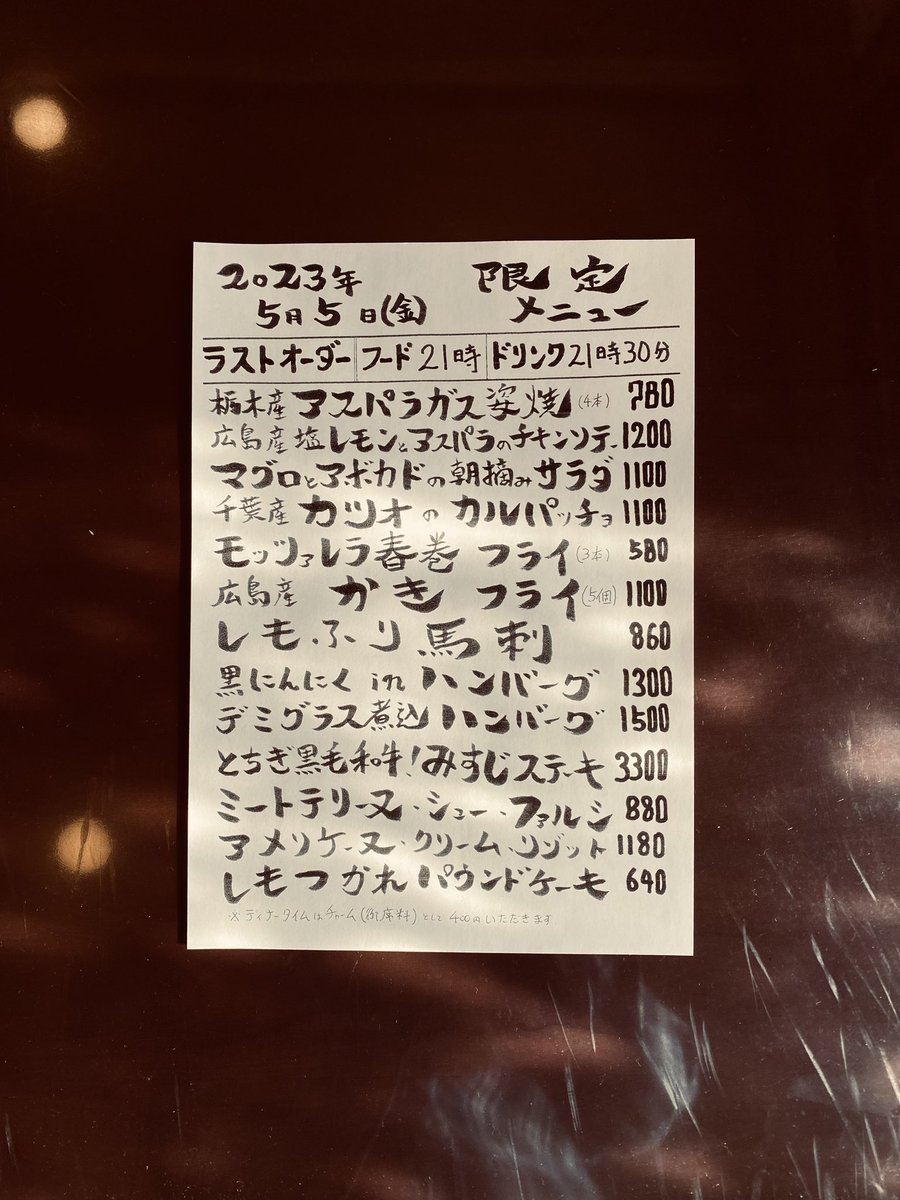 2023年 限定
5月5日(金) メニュー
ラストオーダー フード21時 ドリンク21時30分
栃木産 アスパラガス姿焼(4本) 780
広島産塩レモンとアスパラのチキンソテー 1200
マグロとアボカドの朝摘みサラダ 1100
千葉産 カツオのカルパッチョ 1100
モッツァレラ春巻フライ(3本) 580
広島産 かきフライ(5個) 1100
しもふり馬刺 860
黒にんにくinハンバーグ 1300
デミグラス煮込ハンバーグ 1500
とちぎ黒毛和牛!みすじステーキ 3300
ミートテリーヌ・シュー・ファルシ 880
アメリケーヌ・クリーム・リゾット 1180
しもつかれパウンドケーキ 640
※ディナータイムはチャーム(御席料)として400円いただきます